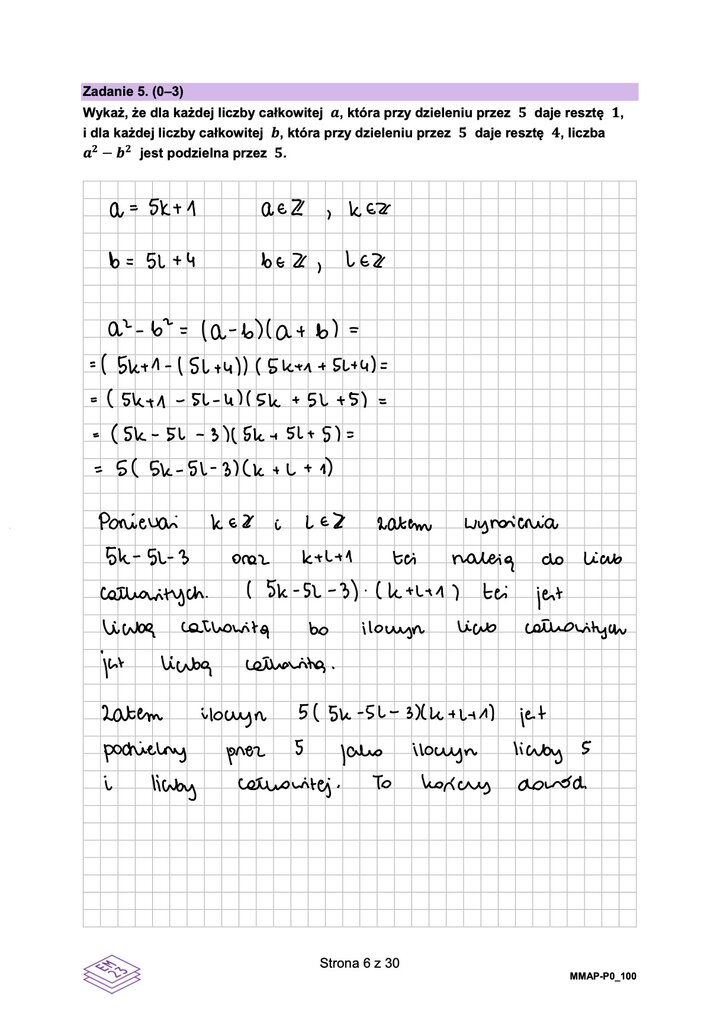 Zadanie 5. (0–3)
Wykaż, że dla każdej liczby całkowitej a, która przy dzieleniu przez 5 daje resztę 1,
i dla każdej liczby całkowitej b, która przy dzieleniu przez 5 daje resztę 4, liczba
a² − b² jest podzielna przez 5.
a = 5k+1 a∈ℤ , k∈ℤ
b = 5l+4 b∈ℤ, l∈ℤ
a² - b² = (a-b)(a+b) =
=(5k+1-(5l+4))(5k+1+5l+4)=
= (5k+1 -5l-4)(5k +5l +5) =
= (5k-5l -3)(5k+5l+5)=
= 5(5k-5l-3)(k+l+1)
Ponieważ k∈ℤ i l∈ℤ zatem wyrażenia
5k-5l-3 oraz k+l+1 też należą do liczb
całkowitych. (5k-5l-3)·(k+l+1) też jest
liczbą całkowitą bo iloczyn liczb całkowitych
jest liczbą całkowitą.
Zatem iloczyn 5(5k-5l-3)(k+l+1) jest
podzielny przez 5 jako iloczyn liczby 5
i liczby całkowitej. To kończy dowód.
EM
23
Strona 6 z 30
MMAP-P0_100